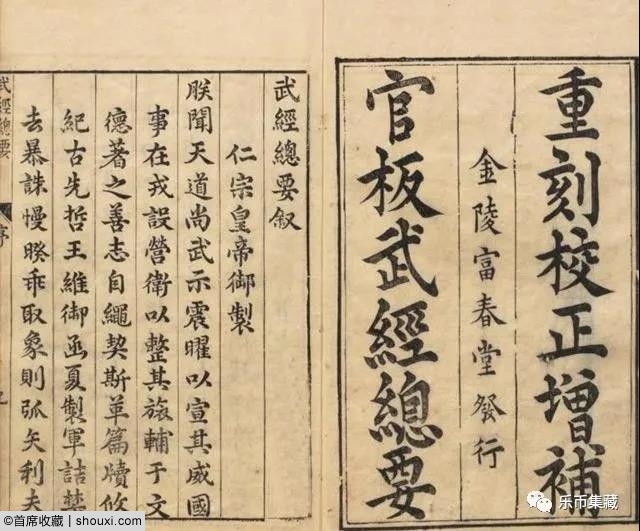 重刻校正增補
金陵富春堂發行
官板武經總要
武經總要叙
仁宗皇帝御製
朕聞天道尚武示震曜以宣其威國
事在戎設營衛以整其旅輔于文
德著之善志自繩契斯革篇牘攸
紀古先哲王維御函夏製軍詰禁
去暴誅慢暌乖取象則弧矢利夫
武經總要
序
乐币集藏
@首席收藏 | shouxi.com